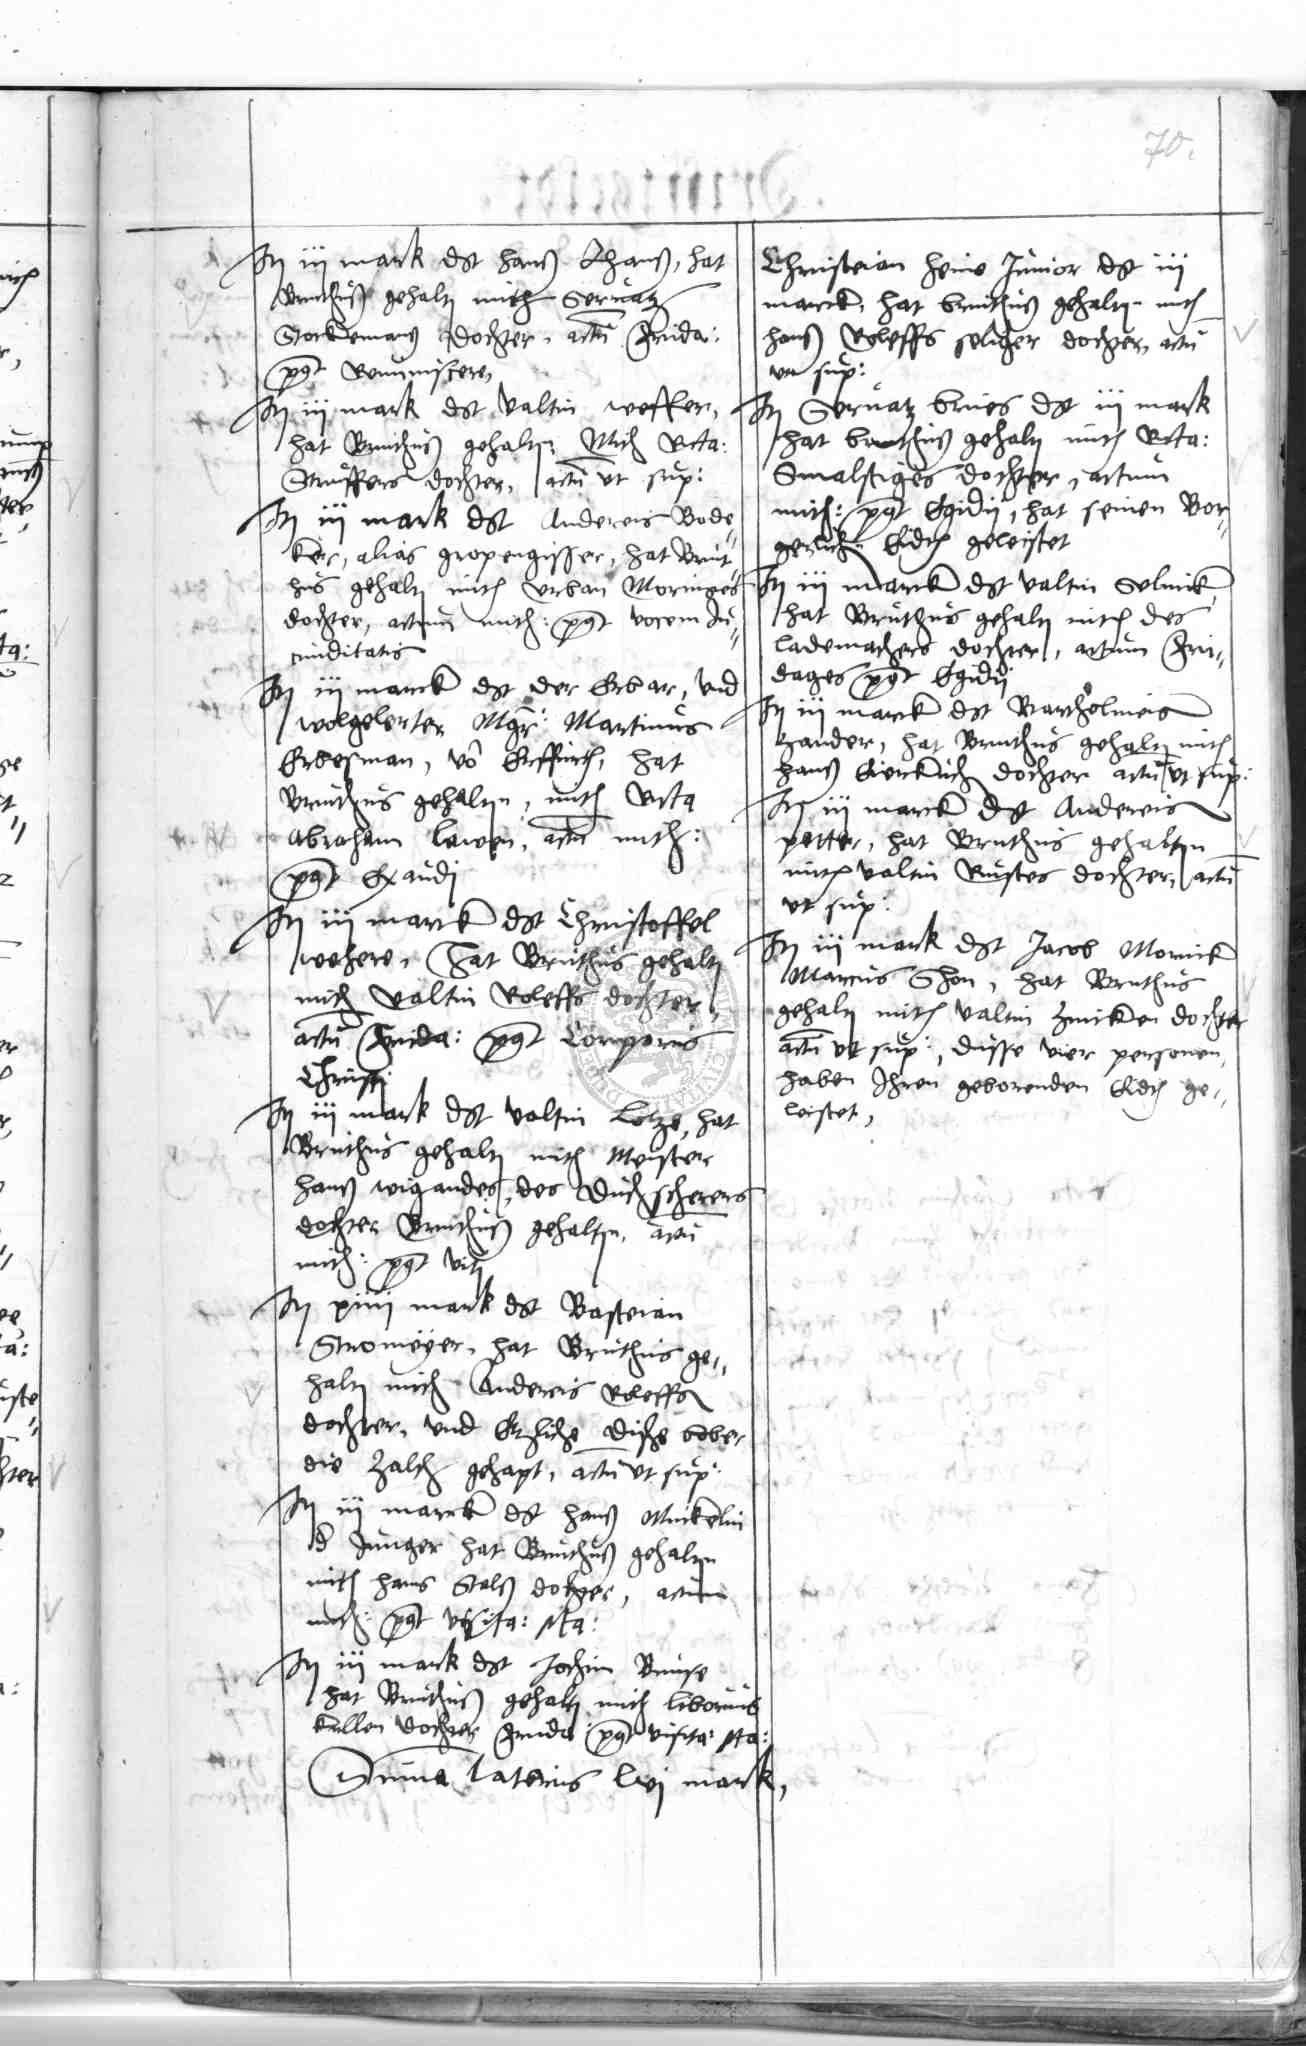 70.
It iij mark dst hans Khans, hat
Bruthus gehaltn mith Servatz
Stockemans dochter, actu Frida:
post Reminiscere,
It iij mark dst Valtin weffer,
hat Bruthus gehaltn Mith Rcta:
Struffers dochter, actu ut sup:
It iij mark dst Andereis Bode"
ker, alias gropengisser, hat Brut"
hus gehaltn mith Urban Moringes
dochter, actum mith: post vocem Ju"
cunditatis
It iij marck dst der Erbar, und
wolgelerter Mgr: Martinus
Erbesman, vo Erffurth, hat
Bruthus gehaltn, mith Rcta
Abraham Lawen, actu mith:
post Exaudj
It iij marck dst Christoffel
wehere, Hat Bruthus gehaltn
mith Valtin Roleffs dochter,
actu Frida: post Corporis
Christj
It iij mark dst Valtin Lotze, hat
Bruthus gehaltn mith Meister
hans wigandes, des Duchscherers
dochter Bruthus gehaltn, actu
mith: post Vitj
It xiiij mark dst Basteian
Stromeyer, hat Bruthus ge"
haltn mith Andereis Roleffs
dochter, und Etzliche Dische bober
die Zalth gehapt, actu ut sup:
It iij marck dst hans
d Junger hat Bruthus gehaltn
mith hans Stals dochter, actum
mith: post Visita: Ma:
It iij mark dst Jochim Bruse
hat Bruthus gehaltn mith liborius
kullen dochter Frida: post Visita: Ma:
Suma lateris lvj mark,
Christeian heine Junior dst iij
marck, hat bruthus gehaltn mith
hans Roleffs seliger dochter, actu
ut sup:
It Servatz brues dst iij mark
hat bruthus gehaltn mith Rcta:
Smalstiges dochter, actum
mith: post Egidij, hat seinen Bor"
gerlich: Eidth geleistet
It iij marck dst Valtin Sulnick
hat Bruthus gehaltn mith des
lademachers dochter, actum Fri"
dages post Egidij
It iij marck dst Bartholmeis
Zander, hat Bruthus gehaltn mith
hans dochter actu ut sup:
It iij marck dst Andereis
petter, hat Bruthus gehaltn
mith Valtin Rustes dochter, actu
ut sup:
It iij mark dst Jacob Mornick
Marcus Shon, hat Bruthus
gehaltn mith Valtin Zwicken dochter
actu ut sup:, dusse vier personen
haben Ihren geborenden Eidth ge"
leistet,